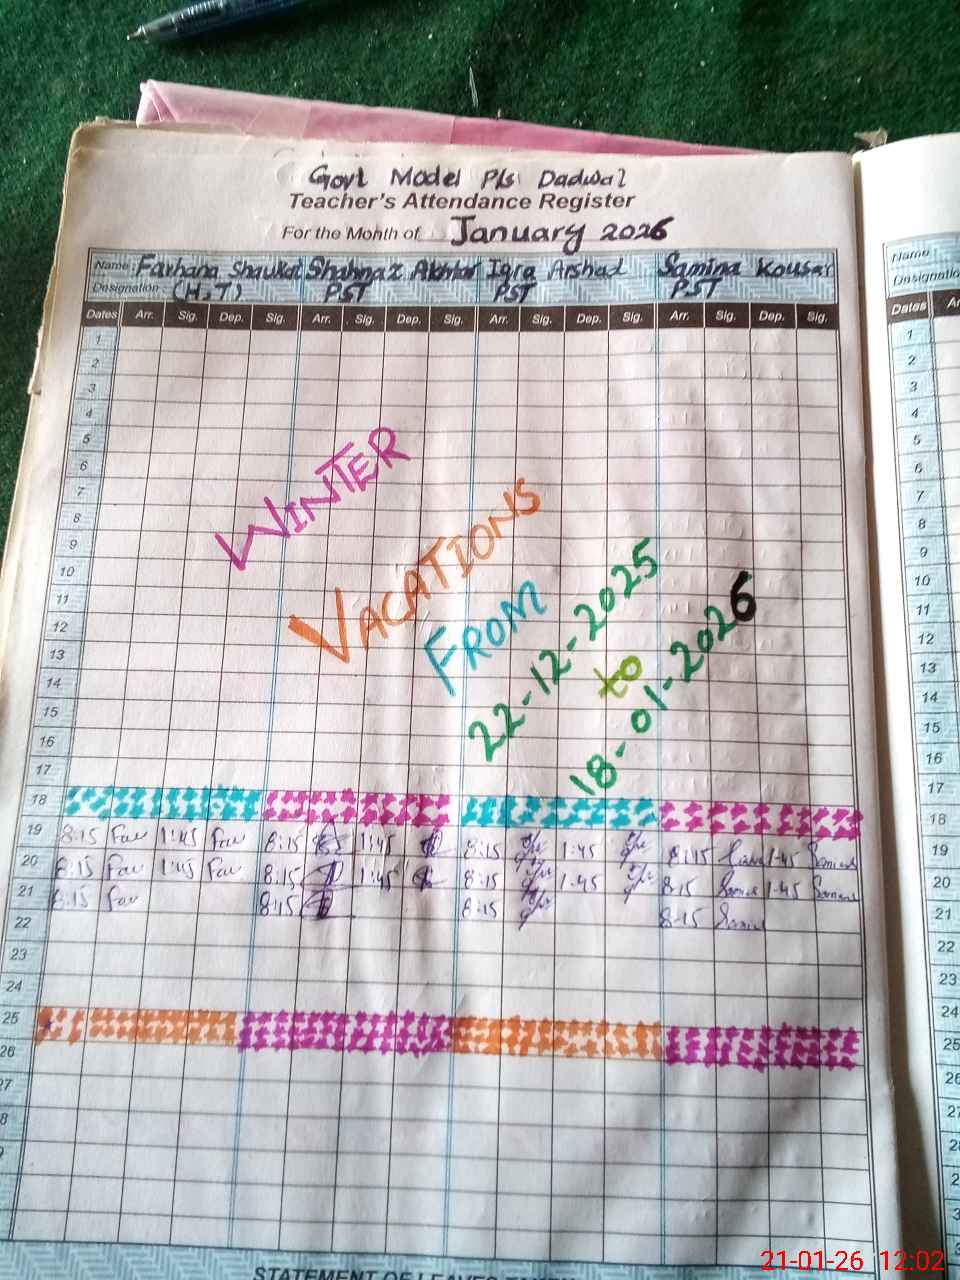 Govt Model P/s Dadwal
Teacher's Attendance Register
For the Month of January 2026
Name: Farhana Shaukat Shahnaz Akhtar Iqra Arshad Samina Kousar
Designation: (H.T) PST PST PST
Dates Arr. Sig. Dep. Sig. Arr. Sig. Dep. Sig. Arr. Sig. Dep. Sig. Arr. Sig. Dep. Sig.
1
2
3
4
5
6
7
8
9
10
11
12
13
14
15
16
17
WINTER
VACATIONS
FROM
22-12-2025
to
18-01-2026
18
19 8:15 Far 1:45 Far 8:15 1:45 8:15 1:45 8:15 1-45
20 8:15 Far 1:45 Far 8:15 1:45 8:15 1:45 8:15 1-45
21 8:15 Far 8:15 8:15 8-15
22
23
24
25
26
27
8
9
STATEMENT OF LEAVES
Name
Designation
Dates
1
2
3
4
5
6
7
8
9
10
11
12
13
14
15
16
17
18
19
20
21
22
23
24
25
26
27
21-01-26 12:02